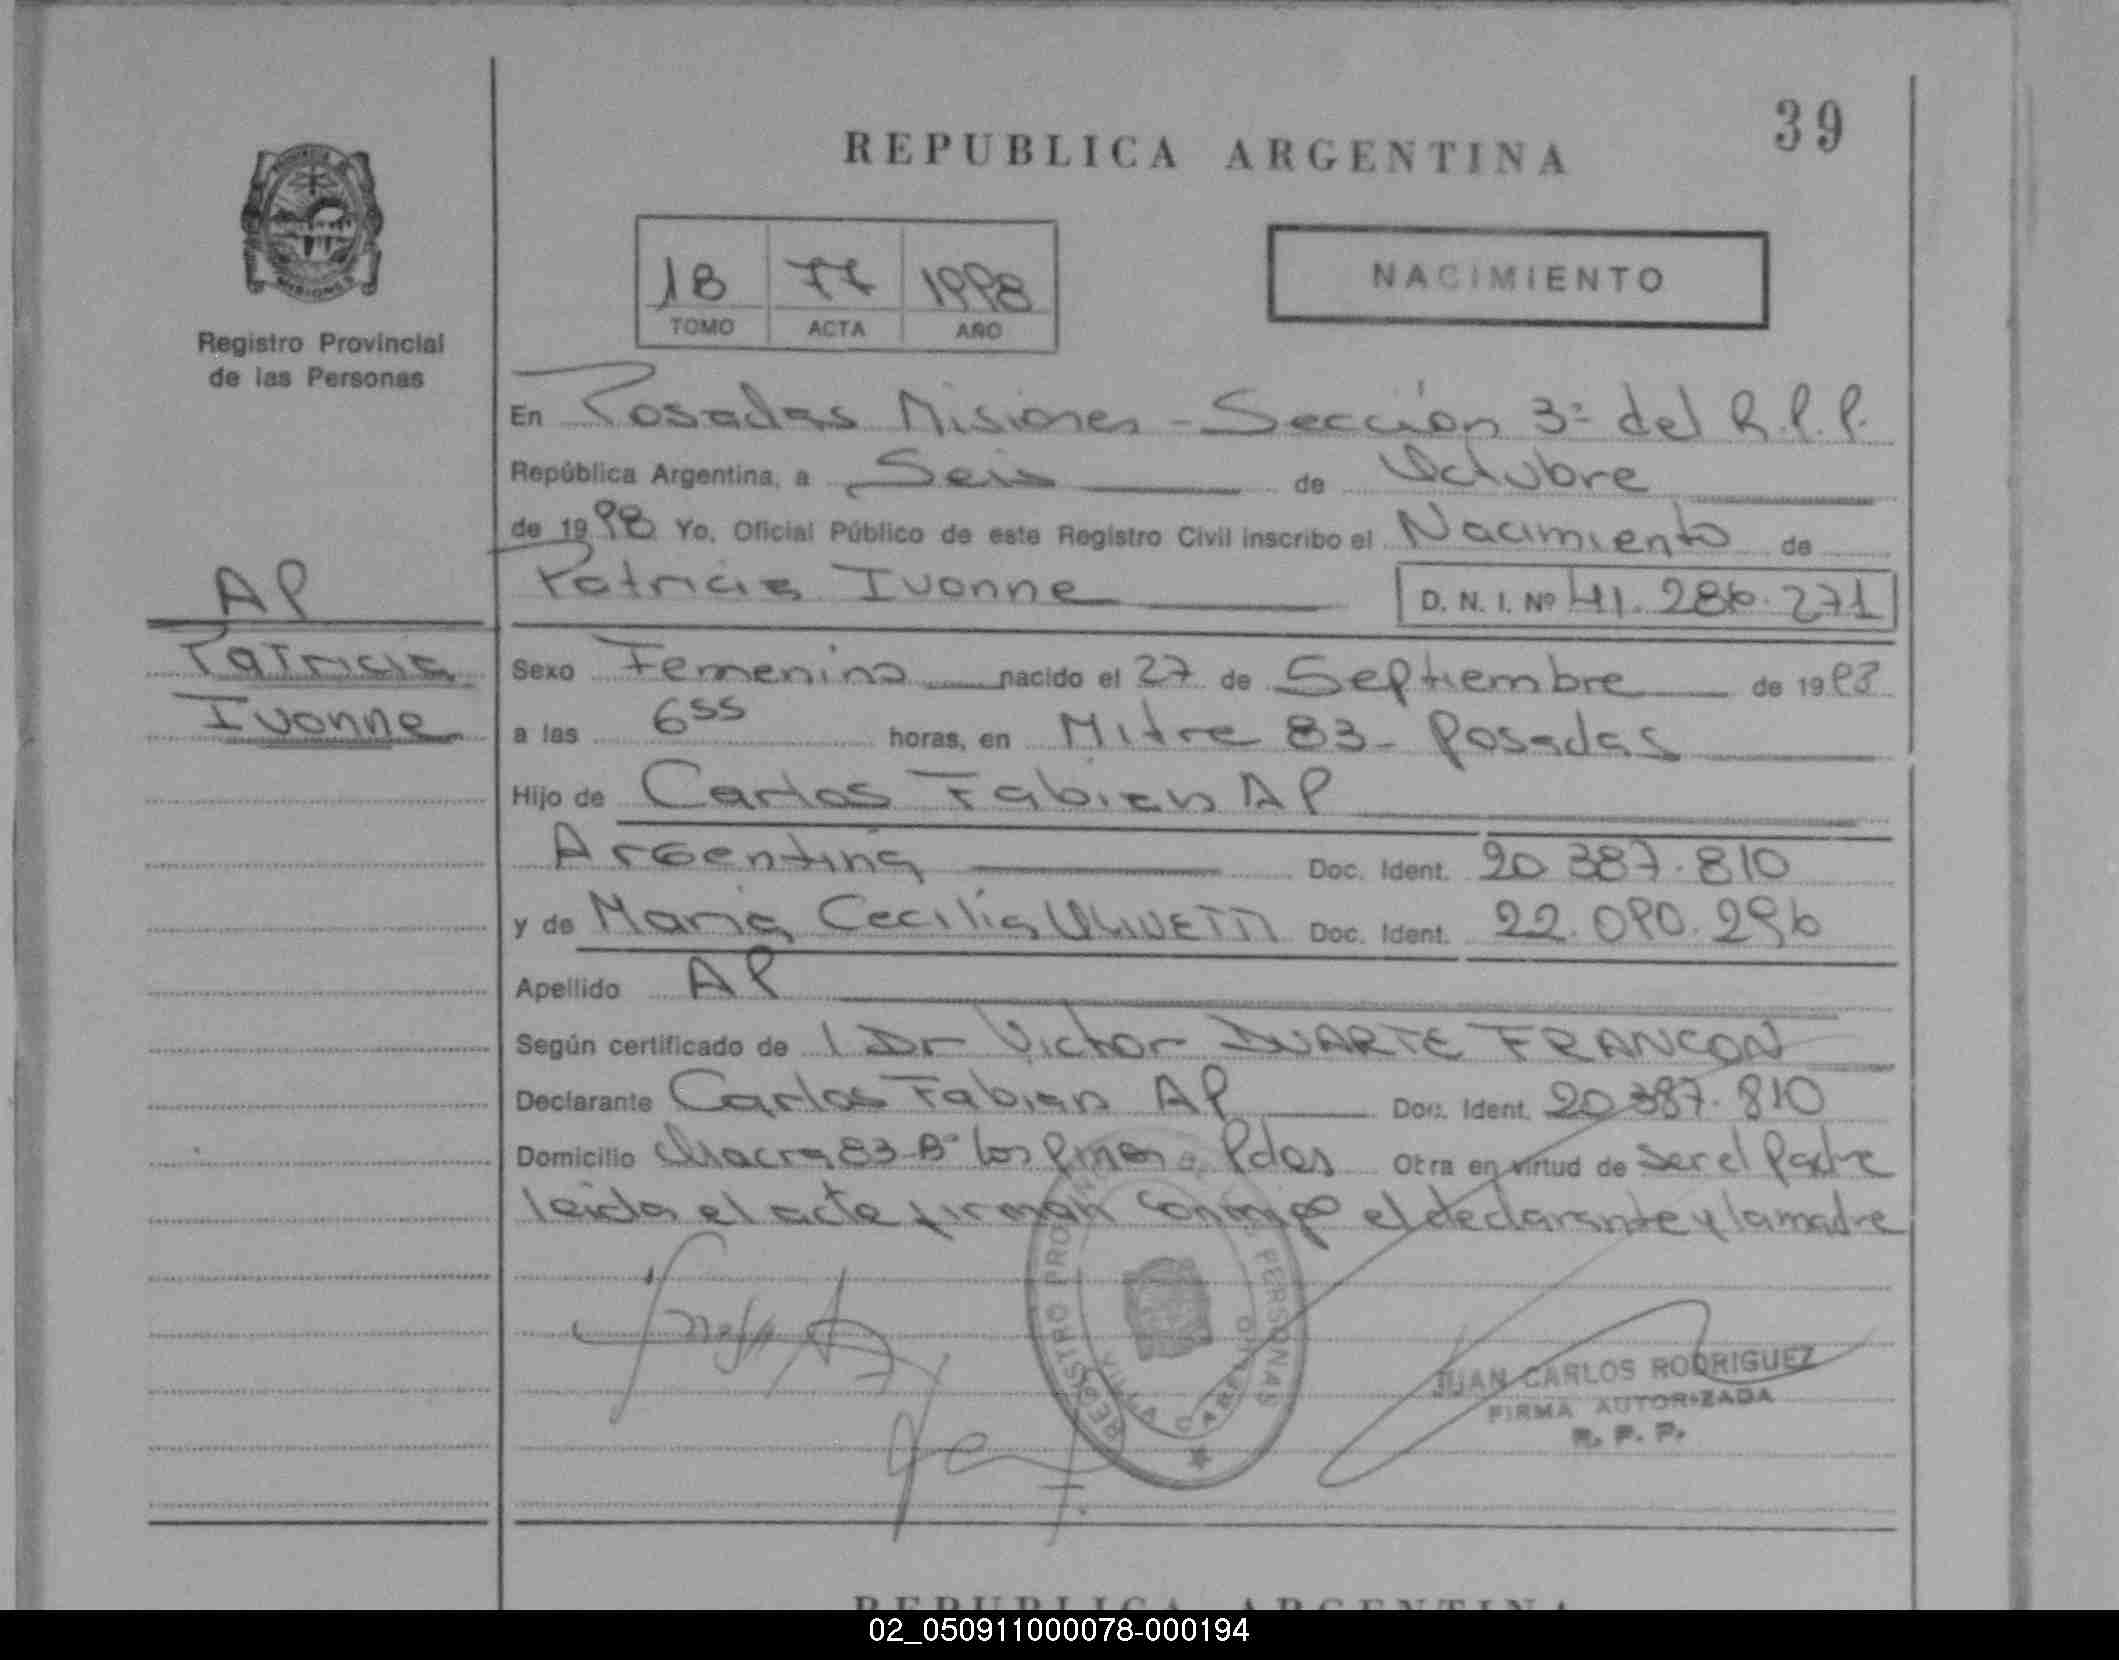 39
REPUBLICA ARGENTINA
18 77 1998
TOMO ACTA AÑO
NACIMIENTO
MISIONES
Registro Provincial
de las Personas
En Posadas Misiones - Sección 3ª del R.P.P.
República Argentina, a Seis de Octubre
de 1998 Yo, Oficial Público de este Registro Civil inscribo el Nacimiento de
Patricia Ivonne D. N. I. Nº 41.286.271
AP
Patricia
Ivonne
Sexo Femenino nacido el 27 de Septiembre de 1998
a las 6 55 horas, en Mitre 83 - Posadas
Hijo de Carlos Fabian AP
Argentina Doc. Ident. 20 387.810
y de Maria Cecilia OLIVETTI Doc. Ident. 22.090.296
Apellido AP
Según certificado de l Dr Victor DUARTE FRANCON
Declarante Carlos Fabian AP Doc. Ident. 20 387.810
Domicilio Chacra 83 - Bº los pinos - Pdas Otra en virtud de ser el Padre
leida el acta firman conmigo el declarante y la madre
REGISTRO PROVINCIAL DE LAS PERSONAS
JUAN CARLOS RODRIGUEZ
FIRMA AUTORIZADA
R. P. P.
REPUBLICA ARGENTINA
02_050911000078-000194